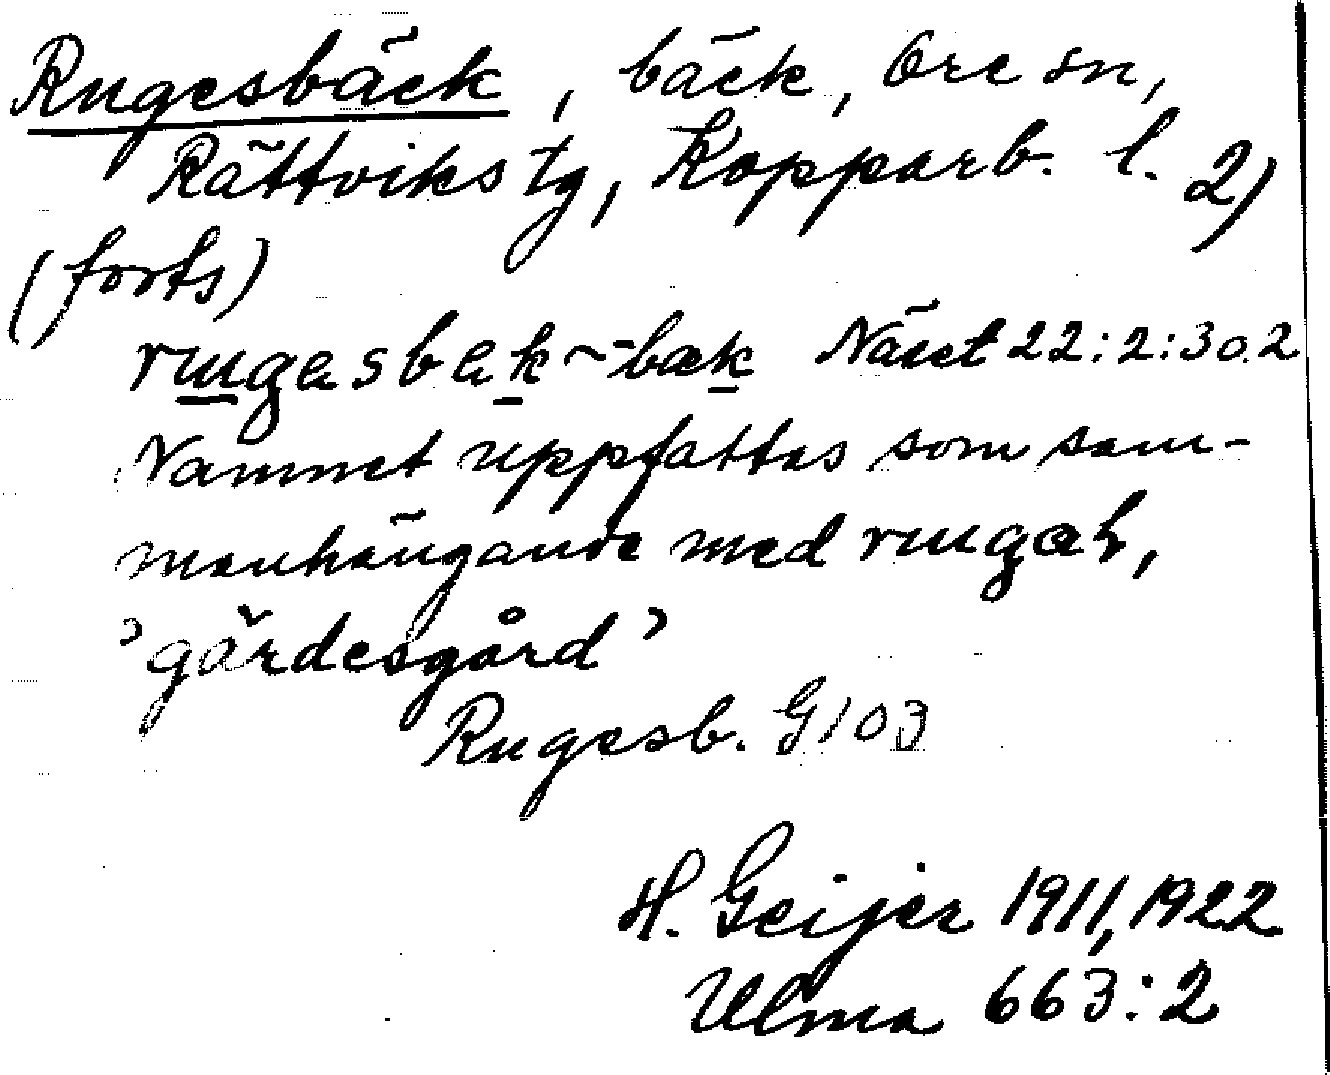 Rugesbäck, bäck, Ore sn,
Rättviks tg, Kopparb. l. 2)
(forts)
Näset 22:2:302
Namnet uppfattas som sam-
manhängande med
'gärdesgård'
Rugesb. G103
H. Geijer 1911, 1922
Ulma 663:2